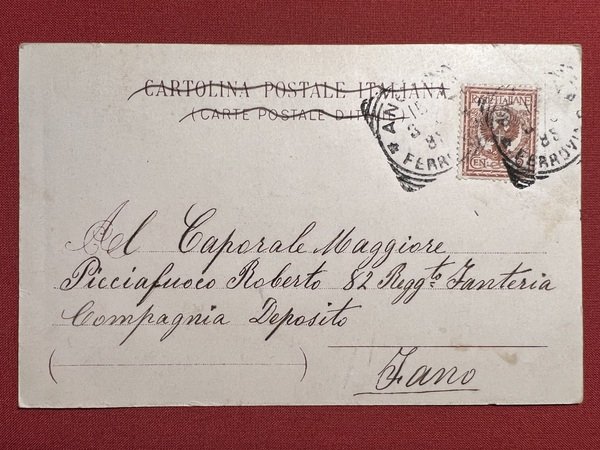 CARTOLINA POSTALE ITALIANA
(CARTE POSTALE D'ITALIE)
POSTE ITALIANE
FERROVIA
Al Caporale Maggiore
Picciafuoco Roberto 82 Reggto Fanteria
Compagnia Deposito
Fano